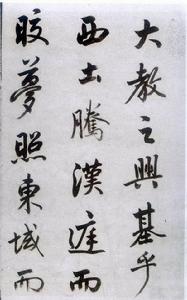 大教之興基乎
西土騰漢庭而
皎夢照東域而